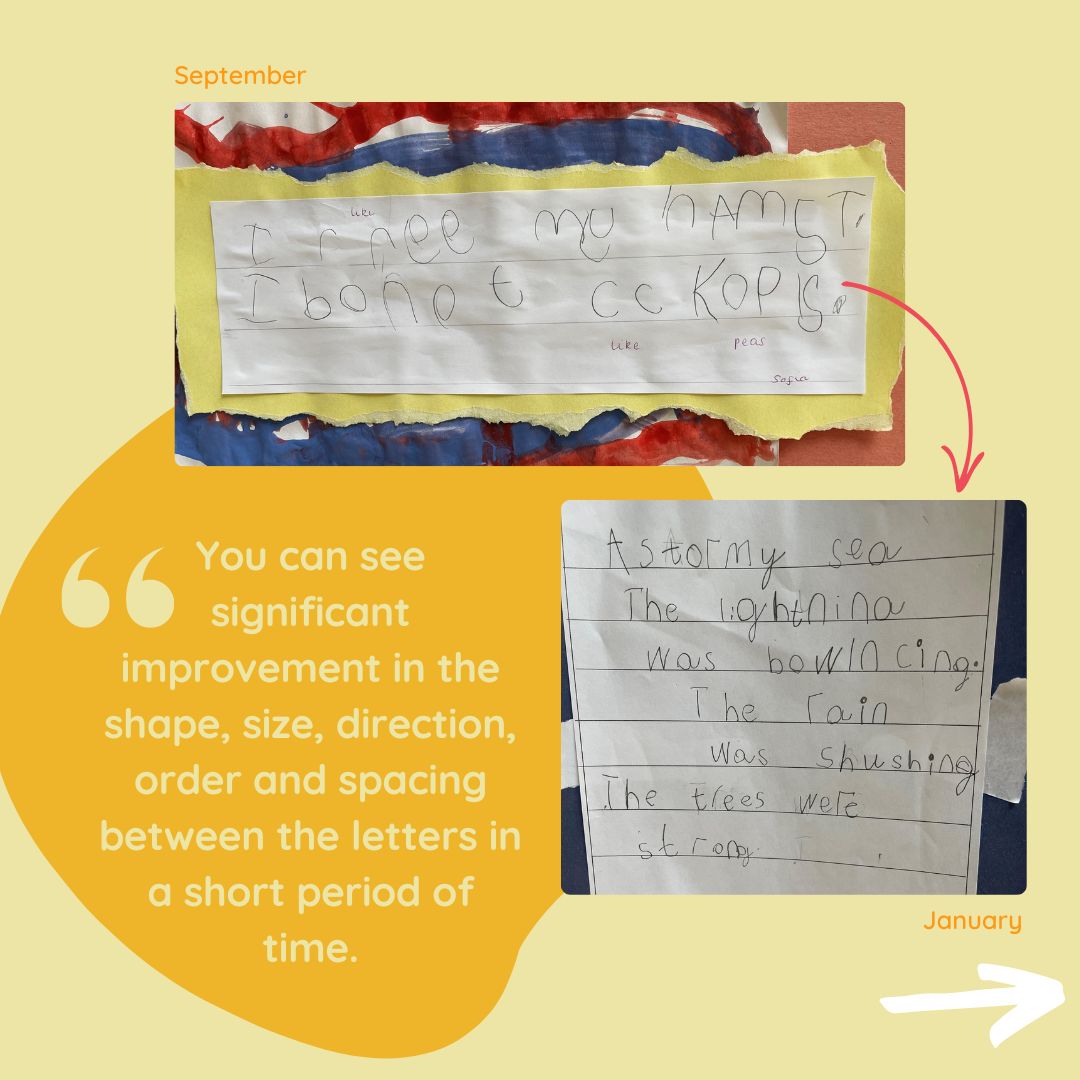 September
like
I r hee my hAMST.
I bonot cc KOPIS.
like peas
Sofia
“
You can see
significant
improvement in the
shape, size, direction,
order and spacing
between the letters in
a short period of
time.
A stormy sea
The lightnina
was bowlncing.
The rain
was shushing
The trees were
strong.
January